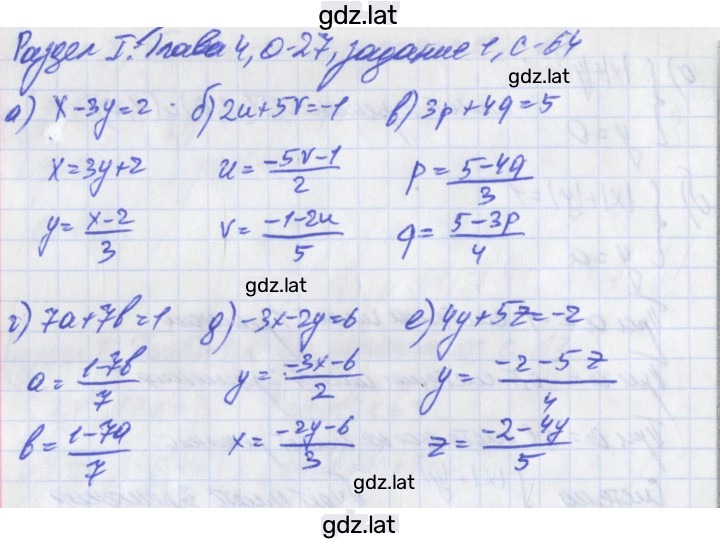 gdz.lat
Раздел I. Глава 4, О-27, задание 1, с-64
gdz.lat
а) x-3y=2 б) 2u+5v=-1 в) 3p+4q=5
x=3y+2 u=\frac{-5v-1}{2} p=\frac{5-4q}{3}
y=\frac{x-2}{3} v=\frac{-1-2u}{5} q=\frac{5-3p}{4}
gdz.lat
г) 7a+7b=1 д) -3x-2y=6 е) 4y+5z=-2
a=\frac{1-7b}{7} y=\frac{-3x-6}{2} y=\frac{-2-5z}{4}
b=\frac{1-7a}{7} x=\frac{-2y-6}{3} z=\frac{-2-4y}{5}
gdz.lat
gdz.lat